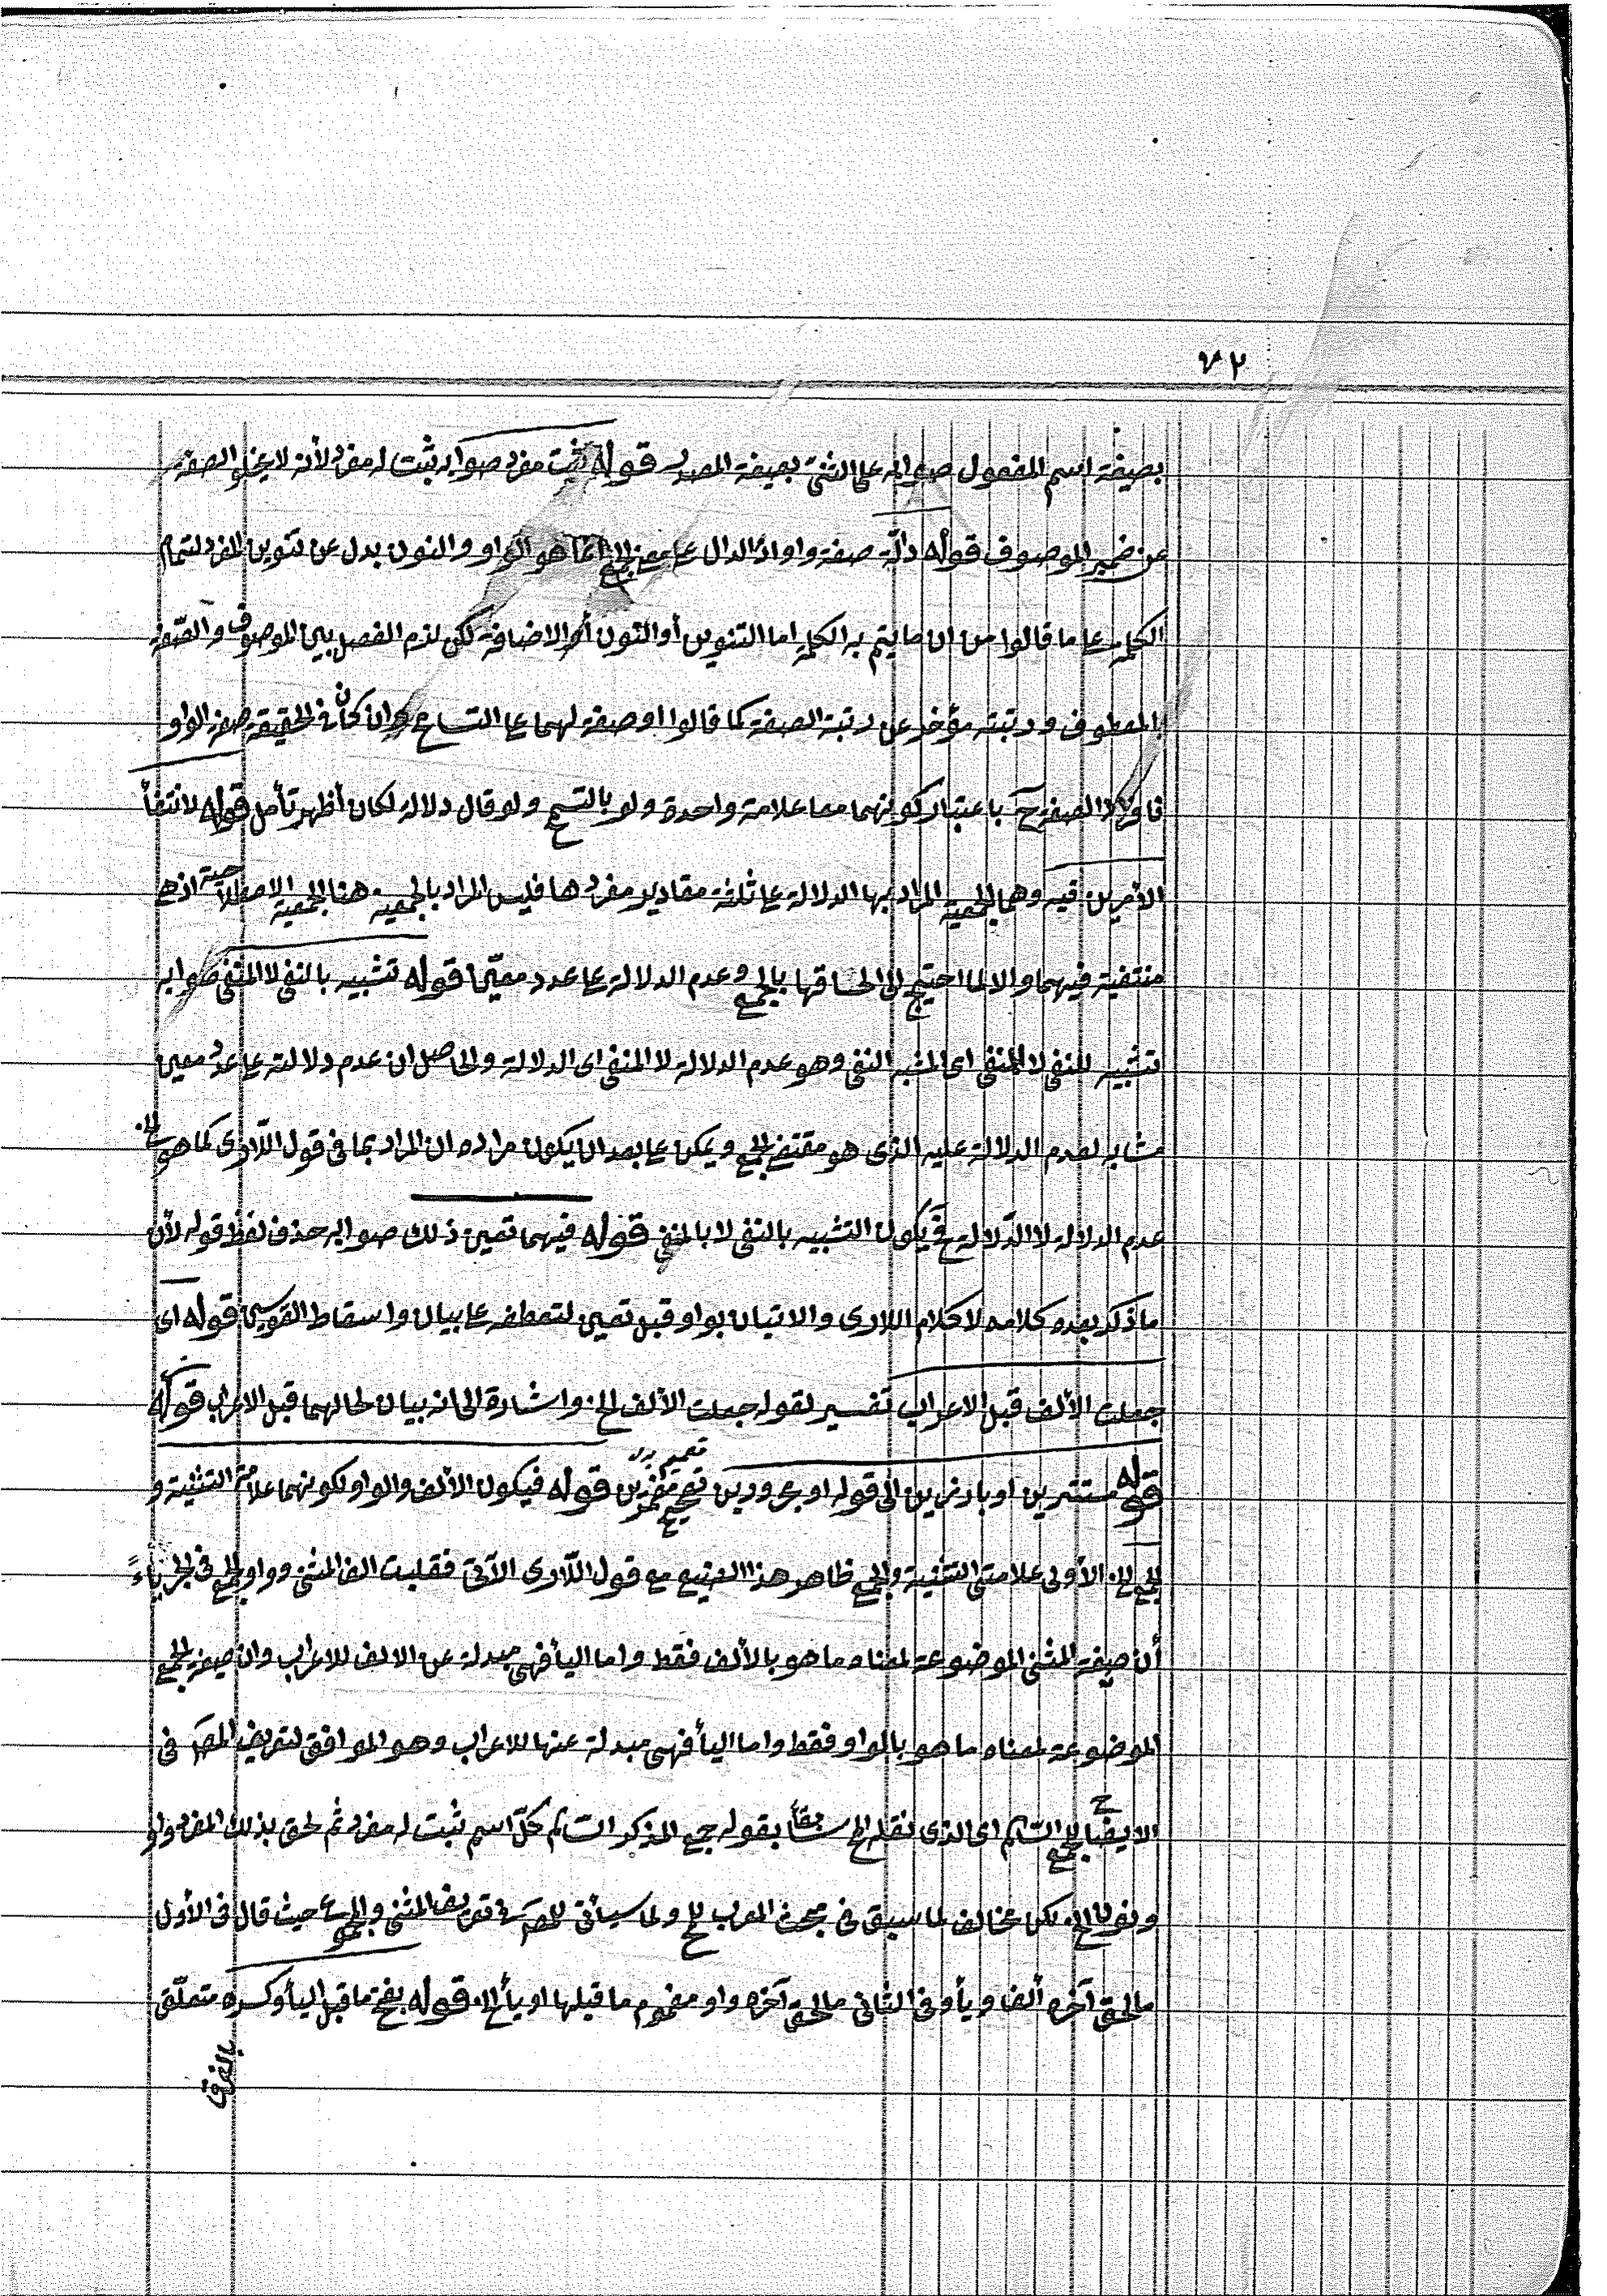 ٣٢
بصيغة اسم المفعول صوابه على المثنى بصيغة المصدر قوله ثبت مفرد صوابه ثبت له مفرد لأنه لا يخلو الصفة
عن ضمير الموصوف قوله دالّة صفة واو اذ الدال على معنى الجمع انما هو الواو والنون بدل عن تنوين المفرد لتمام
الكلمة على ما قالوا من ان ما يتم به الكلمة اما التنوين أو النون أو الاضافة لكن لزم الفصل بين الموصوف والصفة
بالمعطوف ورتبته مؤخر عن رتبة الصفة كما قالوا او صفة لهما على التسامح وان كان في الحقيقة صفة الواو
الصفة ح باعتبار كونهما معا علامة واحدة ولو بالتسمح ولو قال دلالة لكان أظهر تأمل قوله لانتفأ
الأمرين فيه وهما الجمعية المراد بها الدلالة على ثلثة مقادير مفردها فليس المراد بالجمعية هنا الجمعية الاصطلاحية اذ هي
منتفية فيهما والا لما احتيج الى الحاقها بالجمع وعدم الدلالة على عدد معيّن قوله تشبيه بالنفي لا المنفي صوابه
تشبيه للنفي لا للمنفي اى المشبه النفي وهو عدم الدلالة لا المنفي اى الدلالة والحاصل ان عدم دلالته على عدد معين
مشابه لعدم الدلالة عليه الذى هو مقتضى الجمع ويمكن على بعد ان يكون مراده ان المراد بما فى قول اللّارى كما هو الخ
عدم الدلالة لا الدّلالة فح يكون التشبيه بالنفي لا بالمنفي قوله فيهما تعين ذلك صوابه حذف لفظ قوله لأن
ما ذكر بعده كلامه لا كلام اللارى والاتيان بواو قبل تعين لتعطفه على بيان واسقاط القوسين قوله اى
جعلت الألف قبل الاعراب تفسير لقوله جعلت الألف الخ واشارة الى انه بيان لحالهما قبل الاعراب قوله
قوله مستترين او بارزين الى قوله او مجرورين قوله فيكون الألف والواو لكونهما علامة التثنية و
الجمع الخ الأولى علامتى التثنية والجمع ظاهر هذا الصنيع مع قول اللّارى الآتى فقلبت الف المثنى وواو الجمع فى الجر ياءً
أن صيغة المثنى الموضوعة لمعناه ما هو بالألف فقط واما اليأ فهى مبدلة عن الالف للاعراب وان صيغة الجمع
الموضوعة لمعناه ما هو بالواو فقط واما اليأ فهى مبدلة عنها للاعراب وهو الموافق لتعريف المص فى
الجمع السالم اى الذى نقله سابقاً بقوله جمع المذكر السالم كلّ اسم ثبت له مفرد ثم لحق بذلك المفرد واو
ونون الخ لكن مخالف لما سبق فى بحث المعرب ولما سيأتى للمص فى تعريف المثنى والمجموع حيث قال فى الأول
ما لحق آخره ألف و يأ وفى الثانى ما لحق آخره واو مضموم ما قبلها او يأ الخ قوله بفتح ما قبل اليأ وكسره متعلّق
بالفرق